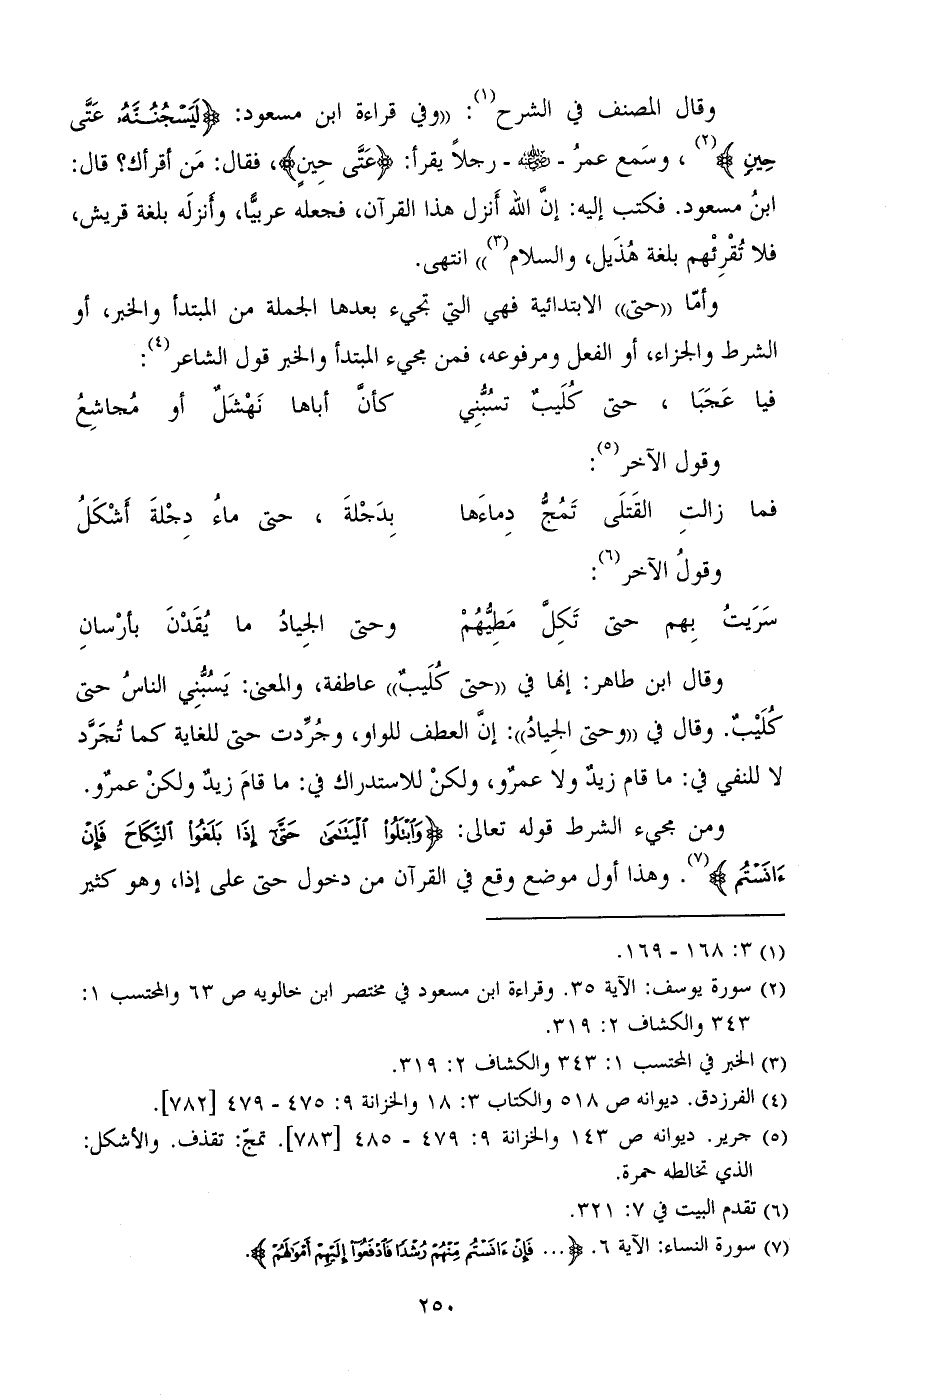 وقال المصنف في الشرح(١): ((وفي قراءة ابن مسعود: ﴿لَيَسْجُنُنَّهُ عَتَّى
حِينٍ﴾(٢)، وسَمع عمرُ - ﷺ - رجلاً يقرأ: ﴿عَتَّى حِينٍ﴾، فقال: مَن أقرأك؟ قال:
ابنُ مسعود. فكتب إليه: إنَّ الله أنزل هذا القرآن، فجعله عربيًّا، وأَنزلَه بلغة قريش،
فلا تُقْرِئْهم بلغة هُذَيل، والسلام(٣))) انتهى.
وأمّا ((حتى)) الابتدائية فهي التي تجيء بعدها الجملة من المبتدأ والخبر، أو
الشرط والجزاء، أو الفعل ومرفوعه، فمن مجيء المبتدأ والخبر قول الشاعر(٤):
فيا عَجَبَا ، حتى كُلَيبٌ تسُبُّني كأنَّ أباها نَهْشَلٌ أو مُجاشِعُ
وقول الآخر(٥):
فما زالتِ القَتلَى تَمُجُّ دِماءَها بِدَجْلةَ ، حتى ماءُ دِجْلةَ أَشْكَلُ
وقولُ الآخر(٦):
سَرَيتُ بِهم حتى تَكِلَّ مَطِيُّهُمْ وحتى الجيادُ ما يُقَدْنَ بأرْسانِ
وقال ابن طاهر: إنها في ((حتى كُلَيبٌ)) عاطفة، والمعنى: يَسُبُّنِي الناسُ حتى
كُلَيْبٌ. وقال في ((وحتى الجيادُ)): إنَّ العطف للواو، وجُرِّدت حتى للغاية كما تُجَرَّد
لا للنفي في: ما قام زيدٌ ولا عمرٌو، ولكنْ للاستدراك في: ما قامَ زيدٌ ولكنْ عمرٌو.
ومن مجيء الشرط قوله تعالى: ﴿وَٱبْتَلُوا۟ ٱلْيَتَٰمَىٰ حَتَّىٰٓ إِذَا بَلَغُوا۟ ٱلنِّكَاحَ فَإِنْ
ءَانَسْتُم﴾(٧). وهذا أول موضع وقع في القرآن من دخول حتى على إذا، وهو كثير
(١) ٣: ١٦٨ - ١٦٩.
(٢) سورة يوسف: الآية ٣٥. وقراءة ابن مسعود في مختصر ابن خالويه ص ٦٣ والمحتسب ١:
٣٤٣ والكشاف ٢: ٣١٩.
(٣) الخبر في المحتسب ١: ٣٤٣ والكشاف ٢: ٣١٩.
(٤) الفرزدق. ديوانه ص ٥١٨ والكتاب ٣: ١٨ والخزانة ٩: ٤٧٥ - ٤٧٩ [٧٨٢].
(٥) جرير. ديوانه ص ١٤٣ والخزانة ٩: ٤٧٩ - ٤٨٥ [٧٨٣]. تمجّ: تقذف. والأشكل:
الذي تخالطه حمرة.
(٦) تقدم البيت في ٧: ٣٢١.
(٧) سورة النساء: الآية ٦. ﴿... فَإِنْ ءَانَسْتُم مِّنْهُمْ رُشْدًا فَٱدْفَعُوٓا۟ إِلَيْهِمْ أَمْوَٰلَهُمْ﴾.
٢٥٠